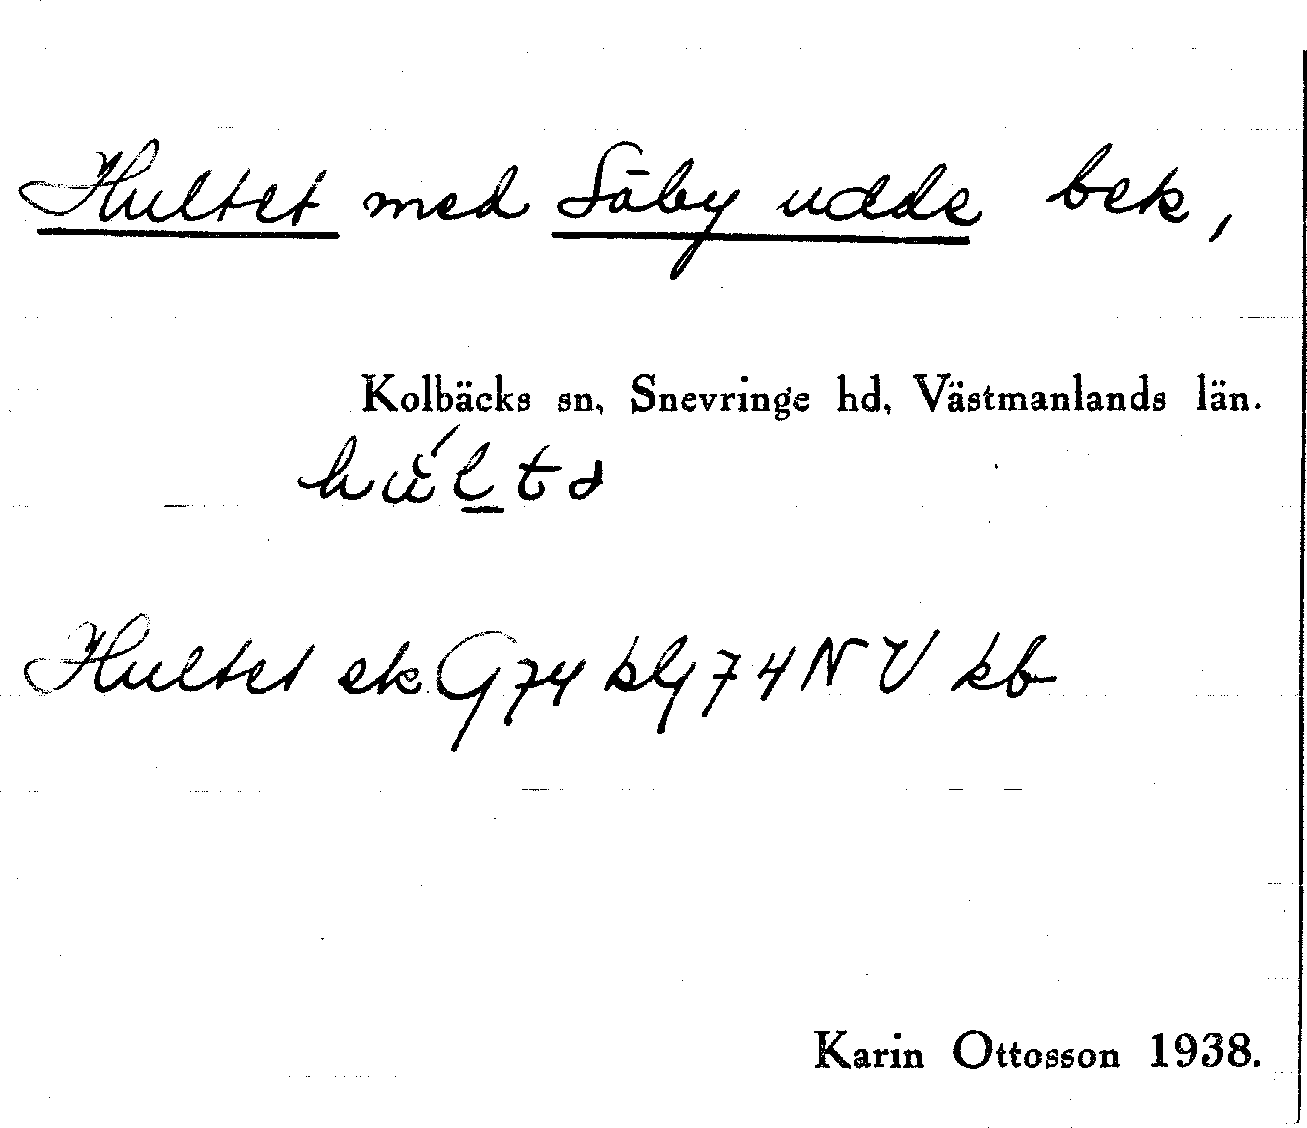 Hultet med Säby udde bek,
Kolbäcks sn, Snevringe hd, Västmanlands län.
húlta
Hultet ek G74 blg 74 NV kb
Karin Ottosson 1938.